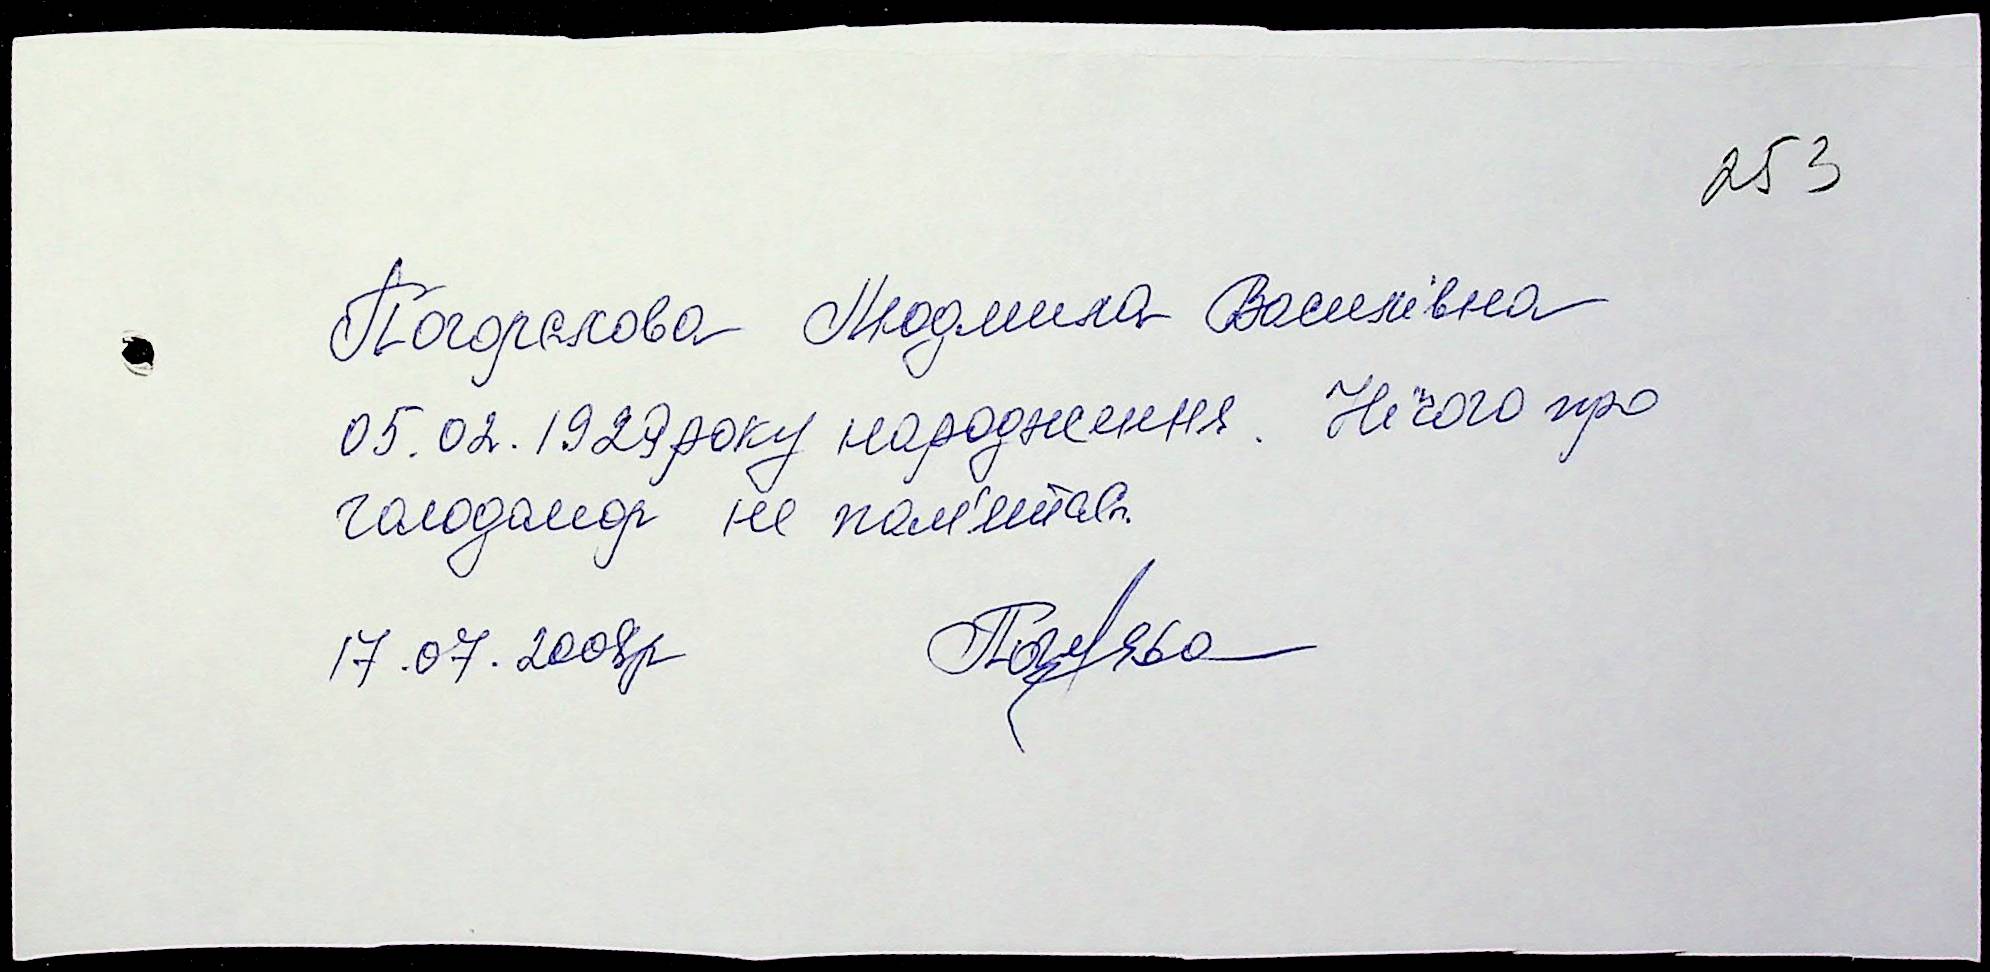 253
Погорєлова Людмила Василівна
05.02.1929 року народження. Нічого про
голодомор не пам'ятає.
17.07.2008р